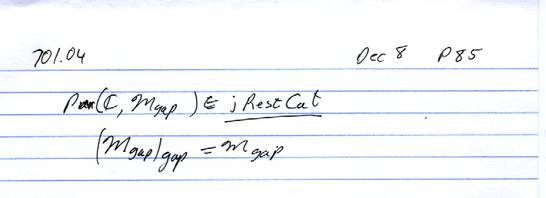 701.04 Dec 8 P85
Par(ℂ, Mgap) ∈ jRestCat
(Mgap)gap = Mgap